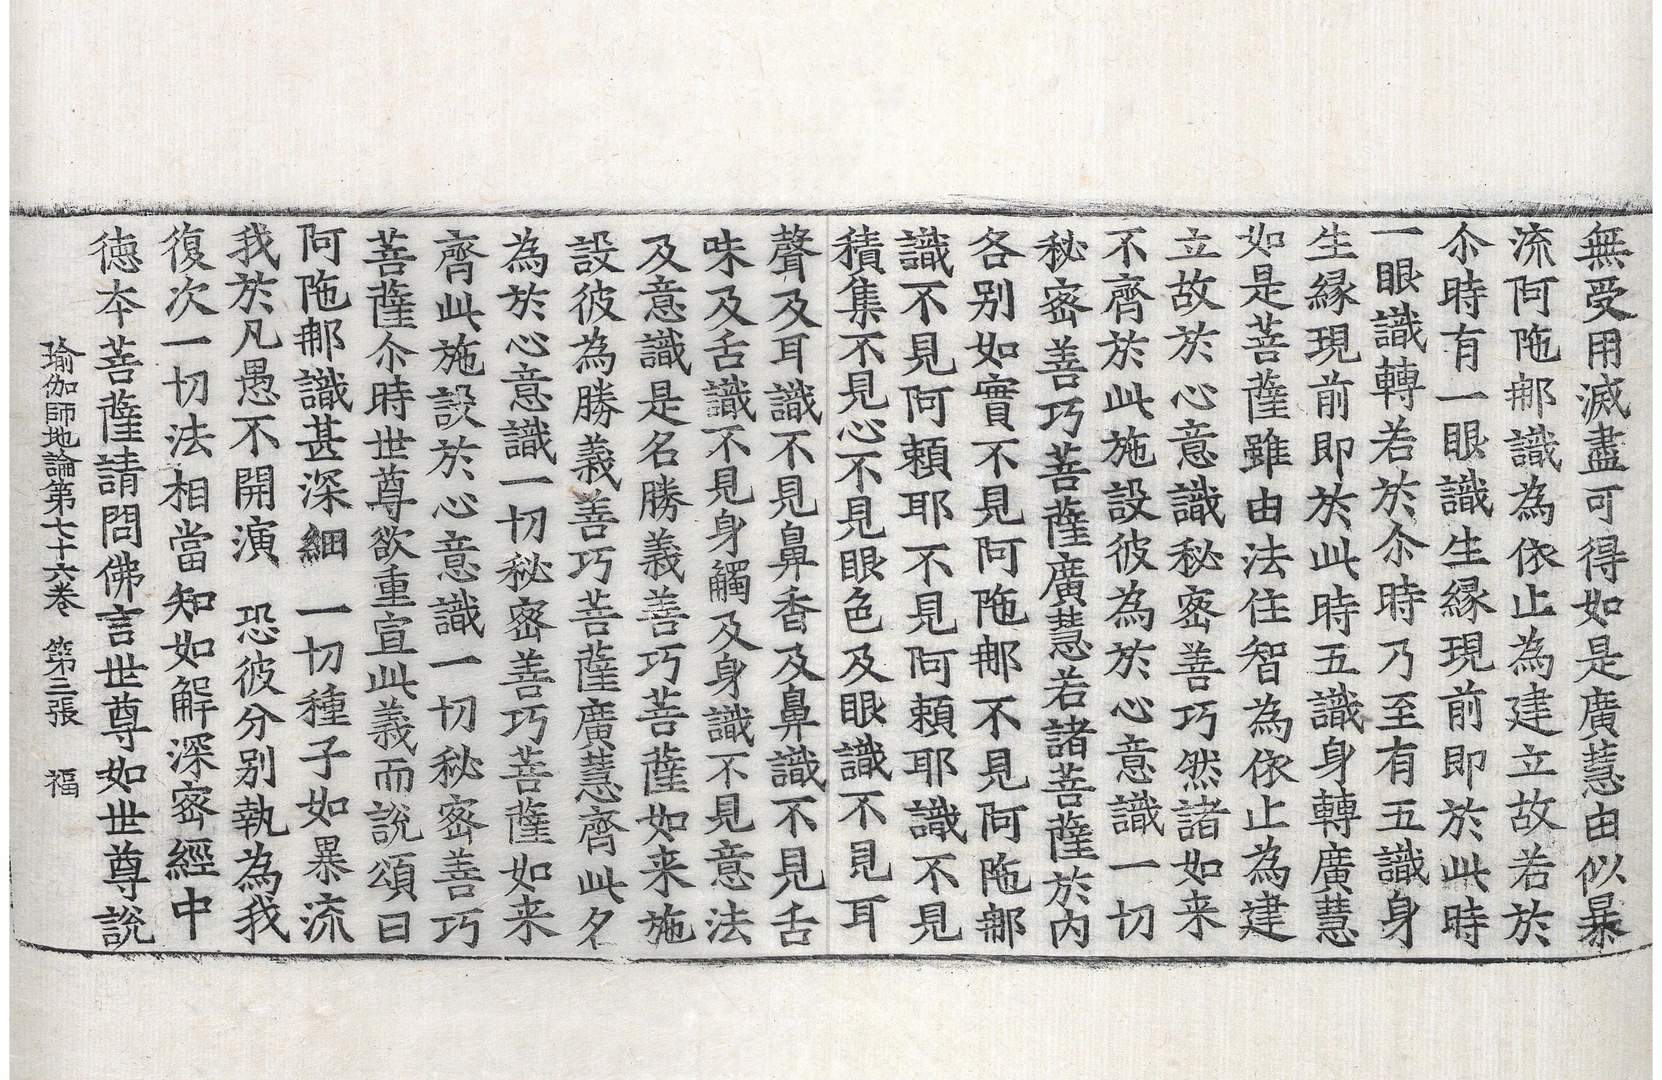 無受用滅盡可得如是廣慧由似暴
流阿陁𨙻識為依止為建立故若於
尒時有一眼識生縁現前即於此時
一眼識轉若於尒時乃至有五識身
生縁現前即於此時五識身轉廣慧
如是菩薩雖由法住智為依止為建
立故於心意識秘密善巧然諸如来
不齊於此施設彼為於心意識一切
秘密善巧菩薩廣慧若諸菩薩於内
各别如實不見阿陁𨙻不見阿陁𨙻
識不見阿頼耶不見阿頼耶識不見
積集不見心不見眼色及眼識不見耳
聲及耳識不見鼻香及鼻識不見舌
味及舌識不見身觸及身識不見意法
及意識是名勝義善巧菩薩如来施
設彼為勝義善巧菩薩廣慧齊此名
為於心意識一切秘密善巧菩薩如来
齊此施設於心意識一切秘密善巧
菩薩尒時世尊欲重宣此義而說頌曰
阿陁𨙻識甚深細　一切種子如暴流
我於凡愚不開演　恐彼分别執為我
復次一切法相當知如解深密經中
徳本菩薩請問佛言世尊如世尊說
瑜伽師地論第七十六卷　第三張　福